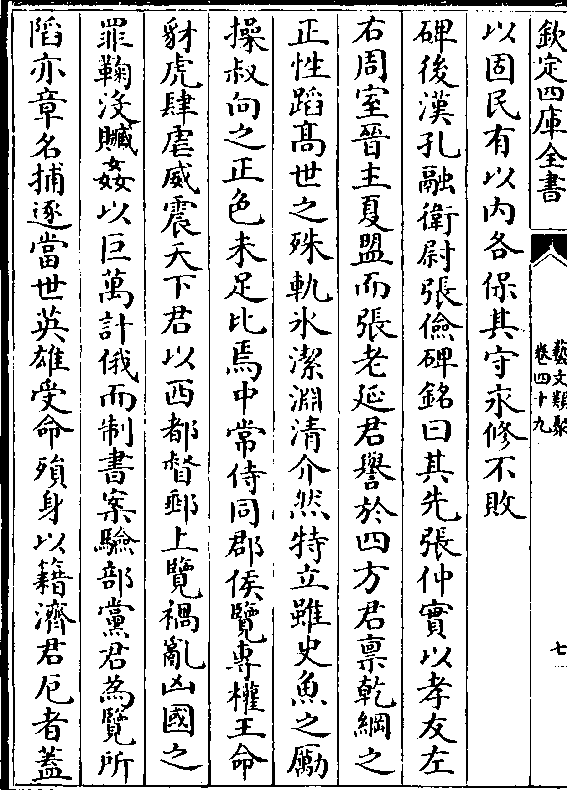 欽定四庫全書
藝文類聚
卷四十九
七
以固民有以内各保其守永修不敗
碑後漢孔融衛尉張儉碑銘曰其先張仲實以孝友左
右周室晉主夏盟而張老延君譽於四方君禀乾綱之
正性蹈髙世之殊軌氷潔淵清介然特立雖史魚之勵
操叔向之正色未足比焉中常侍同郡侯覽専權王命
豺虎肆虐威震天下君以西都督郵上覽禍亂凶國之
罪鞠没贓姦以巨萬計俄而制書案驗部黨君為覽所
陷亦章名捕逐當世英雄受命殞身以籍濟君厄者蓋